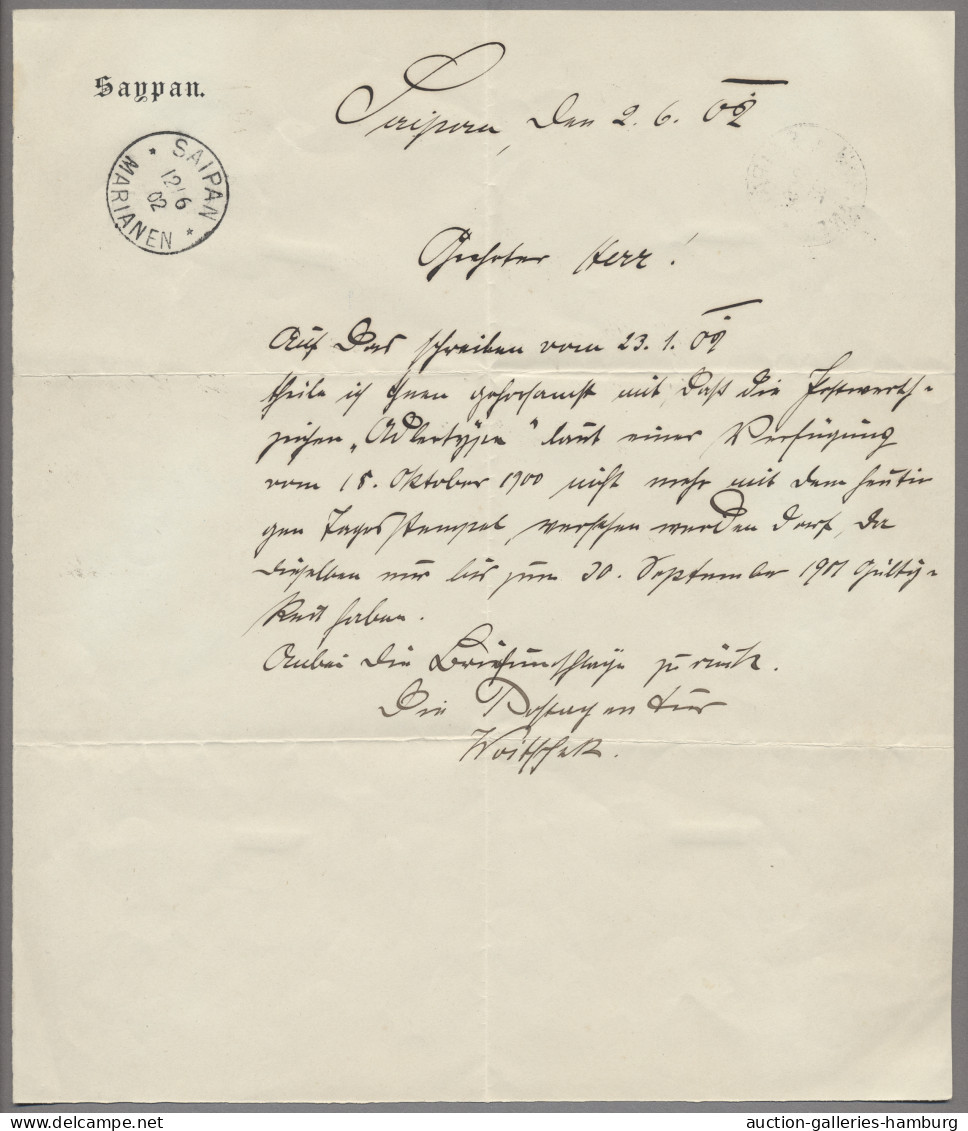 Saypan.
Saipan, den 2. 6. 02
SAIPAN
12/6
02
MARIANEN
Geehrter Herr!
Auf das schreiben vom 23. 1. 02
theile ich Ihnen gehorsamst mit, daß die Postwerth-
zeichen „Adlertype" laut einer Verfügung
vom 15. Oktober 1900 nicht mehr mit dem heuti-
gen Tagesstempel versehen werden darf, da
dieselben nur bis zum 30. September 1901 Gültig-
keit haben.
Anbei die Briefumschläge zurück.
Die Postagentur
Woitscheck.
auction-galleries-hamburg